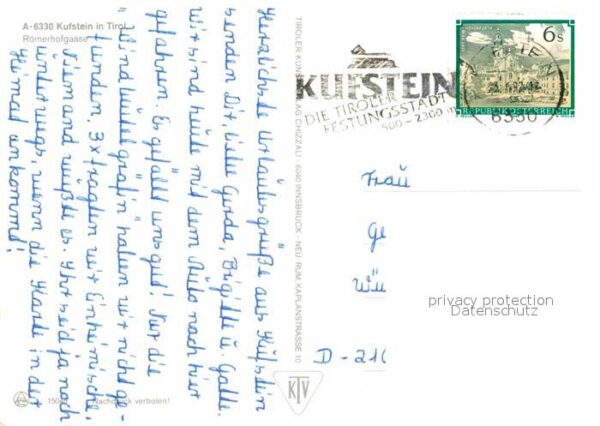 A-6330 Kufstein in Tirol
Römerhofgasse
Herzlichste Urlaubsgrüße aus Kufstein
senden Dir, liebe Gerda, Brigitte u.
Wir sind heute mit dem Auto nach hier
gefahren. Es gefällt uns gut! Nur die
"Windbeutelgräfin" haben wir nicht ge-
funden, 3x fragten wir Einheimische,
niemand wußte es. Ihr seid ja noch
unterwegs, wenn die Karte in der
Heimat ankommt!
TIROLER KUNSTVERLAG CHIZZALI - 6040 INNSBRUCK - NEU-RUM, KAPLANSTRASSE 10
KTV
Nachdruck verboten!
KUFSTEIN
DIE TIROLER
FESTUNGSSTADT
500 - 2300 m
6330
6 S
REPUBLIK ÖSTERREICH
Frau
Ge
Wü
D-210
privacy protection
Datenschutz